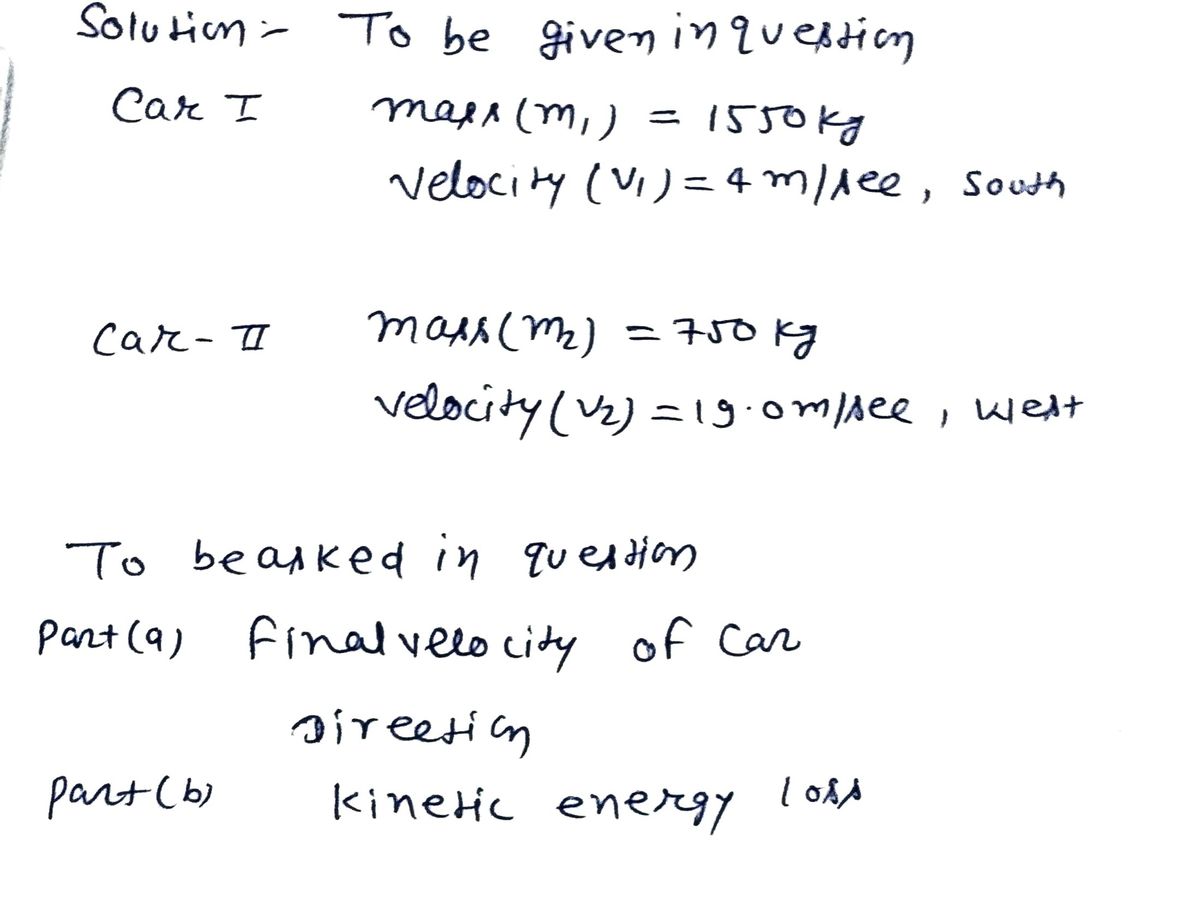 Solution :- To be given in question
Car I mass (m₁) = 1550 kg
velocity (v₁) = 4 m/sec, South
Car - II mass (m₂) = 750 kg
velocity (v₂) = 19.0 m/sec, west
To be asked in question
Part (a) final velocity of Car
Direction
part (b) kinetic energy loss